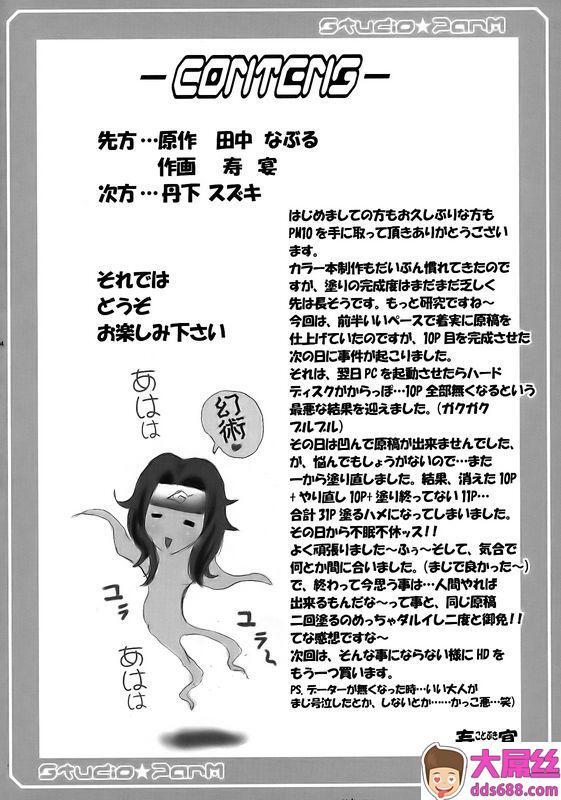 Studio★ParM
-CONTENS-
先方…原作 田中 なぶる
作画 寿 宴
次方…丹下 スズキ
それでは
どうぞ
お楽しみ下さい
はじめましての方もお久しぶりな方も
PM10を手に取って頂きありがとうござい
ます。
カラー本制作もだいぶん慣れてきたので
すが、塗りの完成度はまだまだ乏しく
先は長そうです。もっと研究ですね〜
今回は、前半いいペースで着実に原稿を
仕上げていたのですが、10P目を完成させた
次の日に事件が起こりました。
それは、翌日PCを起動させたらハード
ディスクがからっぽ…10P全部無くなるという
最悪な結果を迎えました。(ガクガク
ブルブル)
その日は凹んで原稿が出来ませんでした、
が、悩んでもしょうがないので…また
一から塗り直しました。結果、消えた10P
+やり直し10P+塗り終ってない11P…
合計31P塗るハメになってしまいました。
その日から不眠不休ッス!!
よく頑張りました〜ふぅ〜そして、気合で
何とか間に合いました。(まじで良かった〜)
で、終わって今思う事は…人間やれば
出来るもんだな〜って事と、同じ原稿
二回塗るのめっちゃダルイし二度と御免!!
てな感想ですな〜
次回は、そんな事にならない様にHDを
もう一つ買います。
PS.データーが無くなった時…いい大人が
まじ号泣したとか、しないとか……かっこ悪…笑)
寿 ことぶき 宴
あはは
幻術
ユラ
ユラ〜
あはは
Studio★ParM
大屌丝
dds688.com